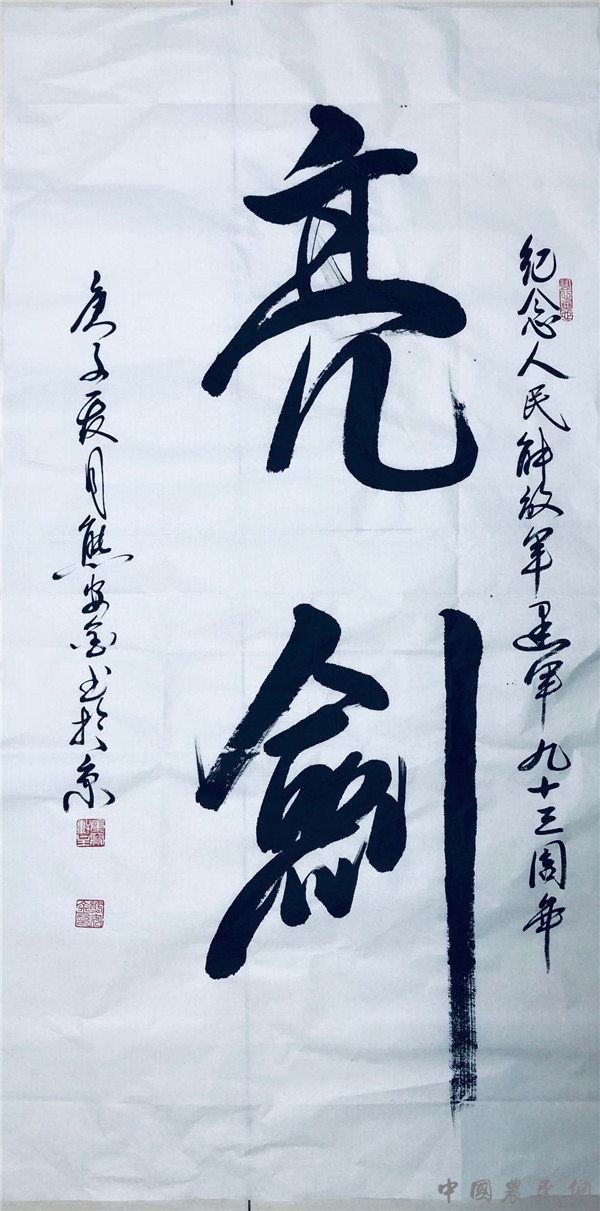 纪念人民解放军建军九十三周年
亮劍
庚子夏月熊安金书於京
中國農民網